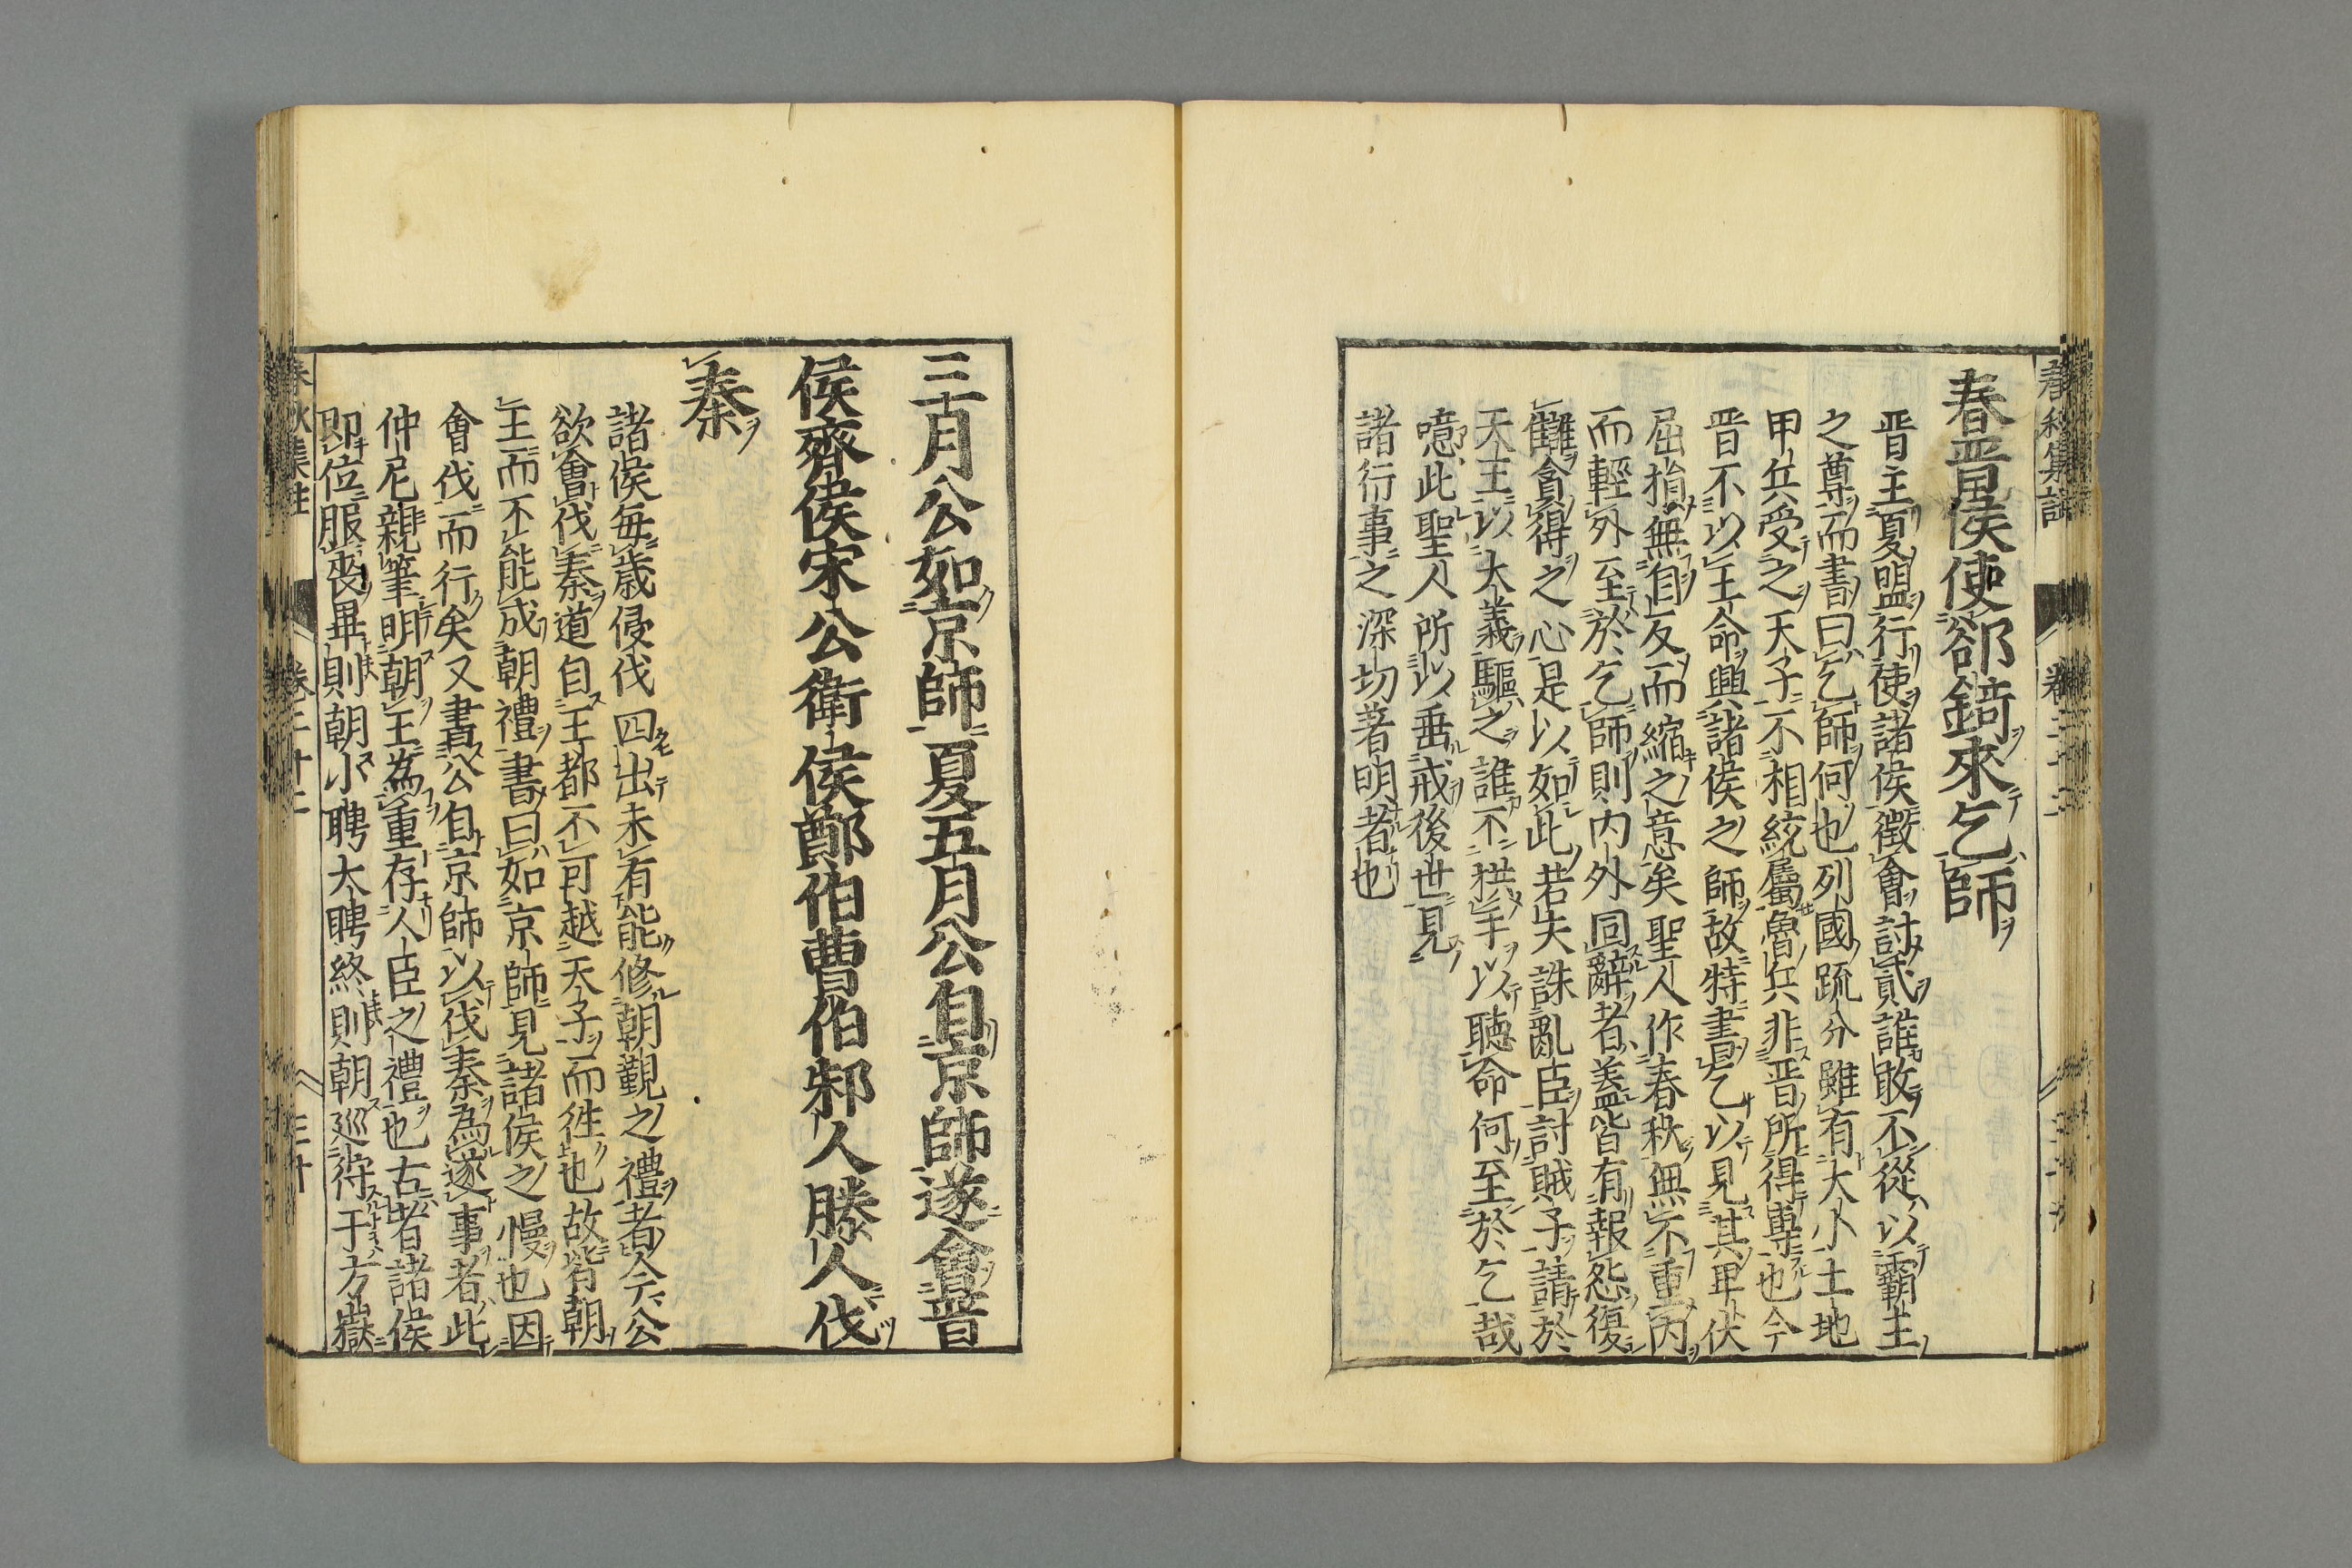 春晉侯使郤錡來乞師
晉主夏盟行使諸侯徵會討貳誰敢不從以霸主
之尊而書曰乞師何也列國疏分雖有大小土地
甲兵受之天子不相統屬魯兵非晉所得專也今
晉不以王命興諸侯之師故特書曰乞以見其卑伏
屈損無自反而縮之意矣聖人作春秋無不重內
而輕外至於乞師則內外同辭者蓋皆有報怨復
讎貪得之心是以如此若夫誅亂臣討賊子請於
天王以大義驅之誰不拱手以聽命何至於乞哉
噫此聖人所以垂戒後世見
諸行事之深切著明者也
三月公如京師夏五月公自京師遂會晉
侯齊侯宋公衛侯鄭伯曹伯邾人滕人伐
秦
諸侯每歲侵伐四出未有能修朝覲之禮者今公
欲會伐秦道自王都不可越天子而徃也故皆朝
王而不能成朝禮書曰如京師見諸侯之慢也因
會伐而行矣又書公自京師以伐秦為遂事者此
仲尼親筆明朝王為重存人臣之禮也古者諸侯
即位服喪畢則朝小聘大聘終則朝巡狩于方嶽
春秋集註 卷二十二 三十